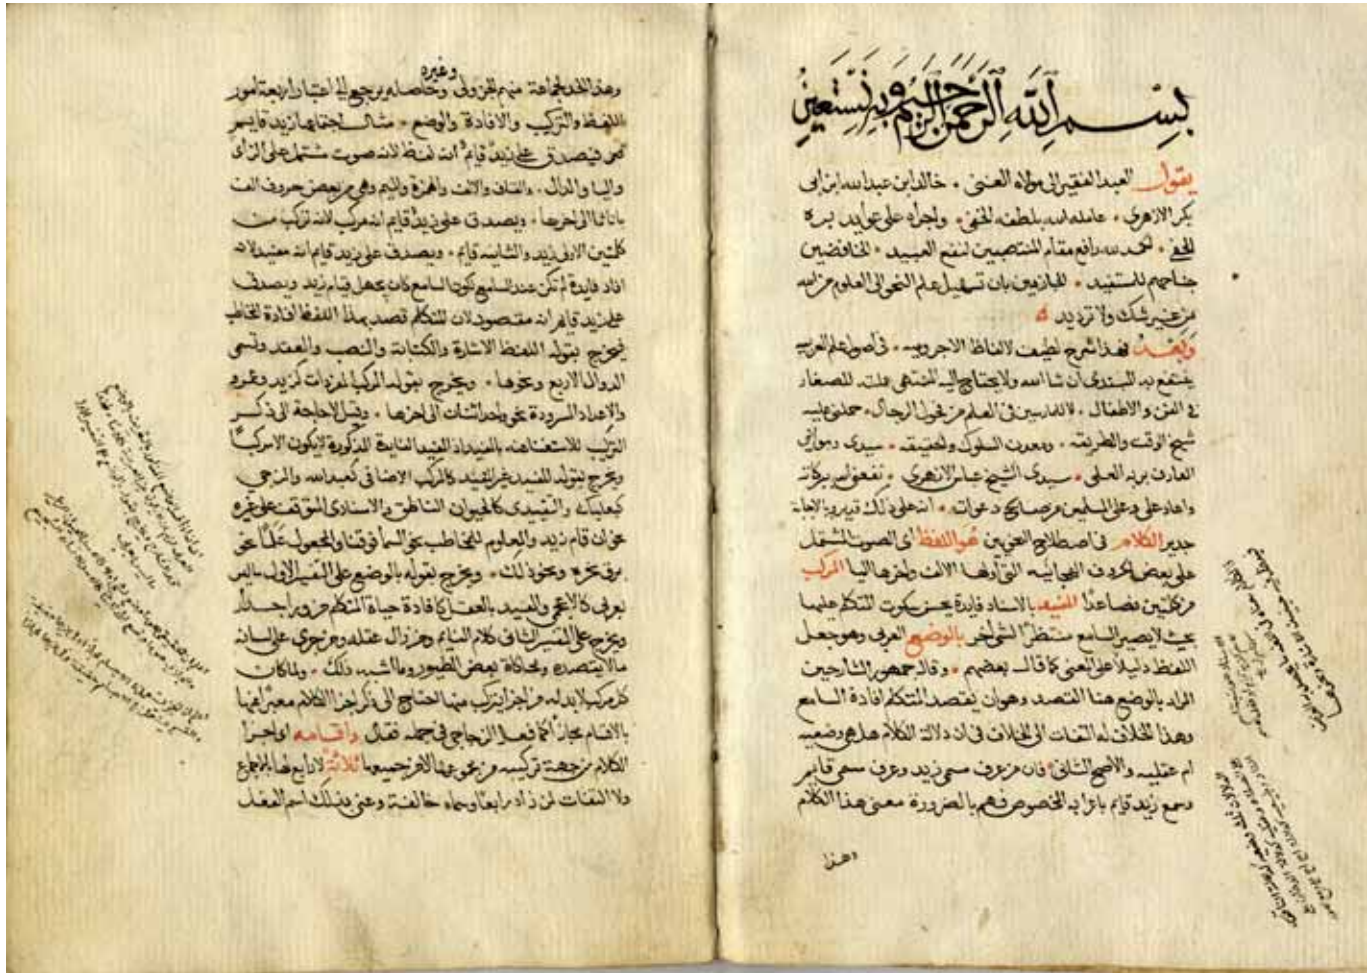 بسم الله الرحمن الرحيم وبه نستعين
يقول العبد الفقير الى مولاه الغنى خالد ابن عبد الله ابن ابى
بكر الازهرى عامله الله بلطفه الخفى واجراه على عوايد بره
الحفى الحمد لله رافع مقام المنتصبين لنفع العبيد الخافضين
جناحهم للمستفيد الجازمين بان تسهيل علم النحو الى العلوم من الله
من غير شك ولا ترديد
وبعد فهذا شرح لطيف لالفاظ الاجروميه فى اصول علم العربيه
ينتفع به المبتدى ان شا الله ولا يحتاج اليه المنتهى عملته للصغار
فى الفن والاطفال لا للممارسين فى العلم من فحول الرجال حملنى عليه
شيخ الوقت والطريقه ومعدن السلوك والحقيقه سيدى ومولاى
العارف بربه العلى سيدى الشيخ عباس الازهرى نفعنى الله ببركاته
واعاد على وعلى المسلمين من صالح دعواته انه على ذلك قدير وبالاجابة
جدير الكلام فى اصطلاح النحويين هو اللفظ اى الصوت المشتمل
على بعض الحروف الهجائيه التى اولها الالف واخرها اليا المركب
من كلمتين فصاعدا المفيد بالاسناد فايدة يحسن سكوت المتكلم عليها
بحيث لا يصير السامع منتظرا لشى اخر بالوضع العربى وهو جعل
اللفظ دليلا على المعنى كما قال بعضهم وقال جمهور الشارحين
المراد بالوضع هنا القصد وهو ان يقصد المتكلم افادة السامع
وهذا الخلاف له التفات الى الخلاف فى ان دلالة الكلام هل هى وضعيه
ام عقليه والاصح الثانى فان من عرف مسمى زيد وعرف مسمى قايم
وسمع زيد قايم باعرابه المخصوص فهم بالضرورة معنى هذا الكلام
وهذا
وغيره
وهذا الحد لجماعة منهم الجزولى وحاصله يرجع الى اعتبار اربعة امور
اللفظ والتركيب والافادة والوضع مثال اجتماعها زيد قايم
فيصدق على زيد قايم انه لفظ لانه صوت مشتمل على الزاى
واليا والدال والقاف والالف والهمزة والميم وهى من بعض حروف الف
با تا ثا الى اخرها ويصدق على زيد قايم انه مركب لانه تركب من
كلمتين الاولى زيد والثانيه قايم ويصدق على زيد قايم انه مفيد لانه
افاد فايدة لم تكن عند السامع لكون السامع كان يجهل قيام زيد ويصدق
على زيد قايم انه مقصود لان المتكلم قصد بهذا اللفظ افادة المخاطب
فيخرج بقوله اللفظ الاشارة والكتابة والنصب والعقد وتسمى
الدوال الاربع ونحوها ويخرج بقوله المركب المفردات كزيد وعمرو
والاعداد المسرودة نحو واحد اثنان الى اخرها وقيل لا حاجة الى ذكر
التركيب للاستغناء عنه بالمفيد اذ المفيد الفايدة المذكورة لا يكون الا مركبا
ويخرج بقوله المفيد غير المفيد كالمركب الاضافى كعبد الله والمزجى
كبعلبك والتقييدى كالحيوان الناطق والاسنادى المتوقف على غيره
نحو ان قام زيد والمعلوم للمخاطب نحو السما فوقنا والمجعول علما نحو
برق نحره ونحو ذلك ويخرج بقوله بالوضع على التفسير الاول ما ليس
بعربى كالاعجمى والمفيد بالعقل كافادة حياة المتكلم من ورا جدار
ويخرج على التفسير الثانى كلام النايم ومن زال عقله ومن جرى على لسانه
ما لا يقصده ومحاكاة بعض الطيور وما اشبه ذلك ولما كان
كل مركب لا بد له من اجزا يتركب منها احتاج الى ذكر اجزا الكلام معبرا عنها
بالاقسام مجازا كما فعل الزجاجى فى جمله فقال واقسامه اى اجزا
الكلام من جهة تركيبه من مجموعها لا من جميعها ثلاثة لا رابع لها بالاجماع
ولا التفات لمن زاد رابعا وسماه خالفة وعنى بذلك اسم الفعل